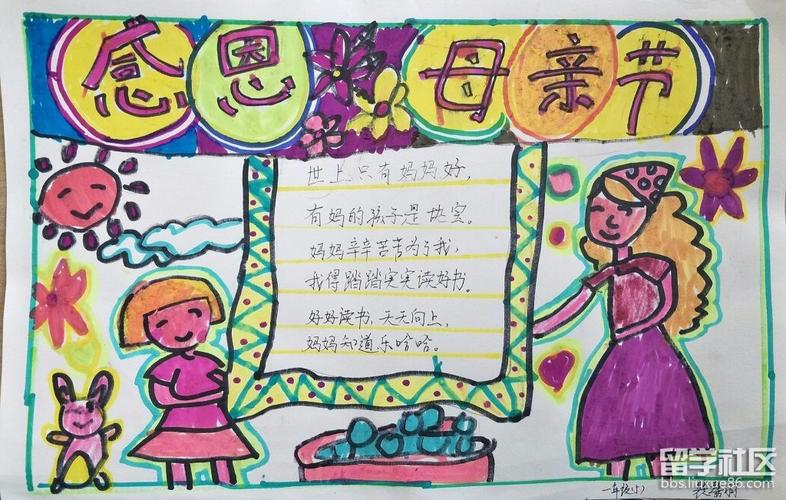 感恩母亲节
世上只有妈妈好,
有妈的孩子是块宝。
妈妈辛辛苦苦为了我,
我得踏踏实实读好书。
好好读书,天天向上,
妈妈知道乐哈哈。
一年级(5)
留学社区
bbs.liuxue86.com